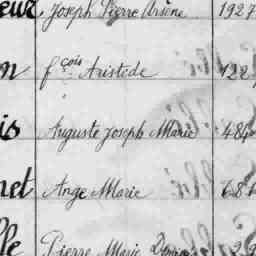 eur Joseph Pierre Arsène 1927
n fçois Aristide 122
is Auguste Joseph Marie 484
net Ange Marie 687
lle Pierre Marie